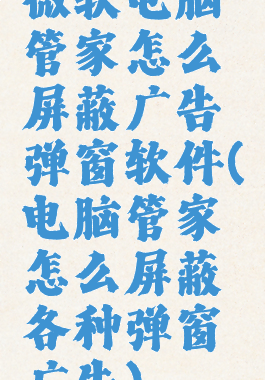 微软电脑
管家怎么
屏蔽广告
弹窗软件(
电脑管家
怎么屏蔽
各种弹窗
广告)